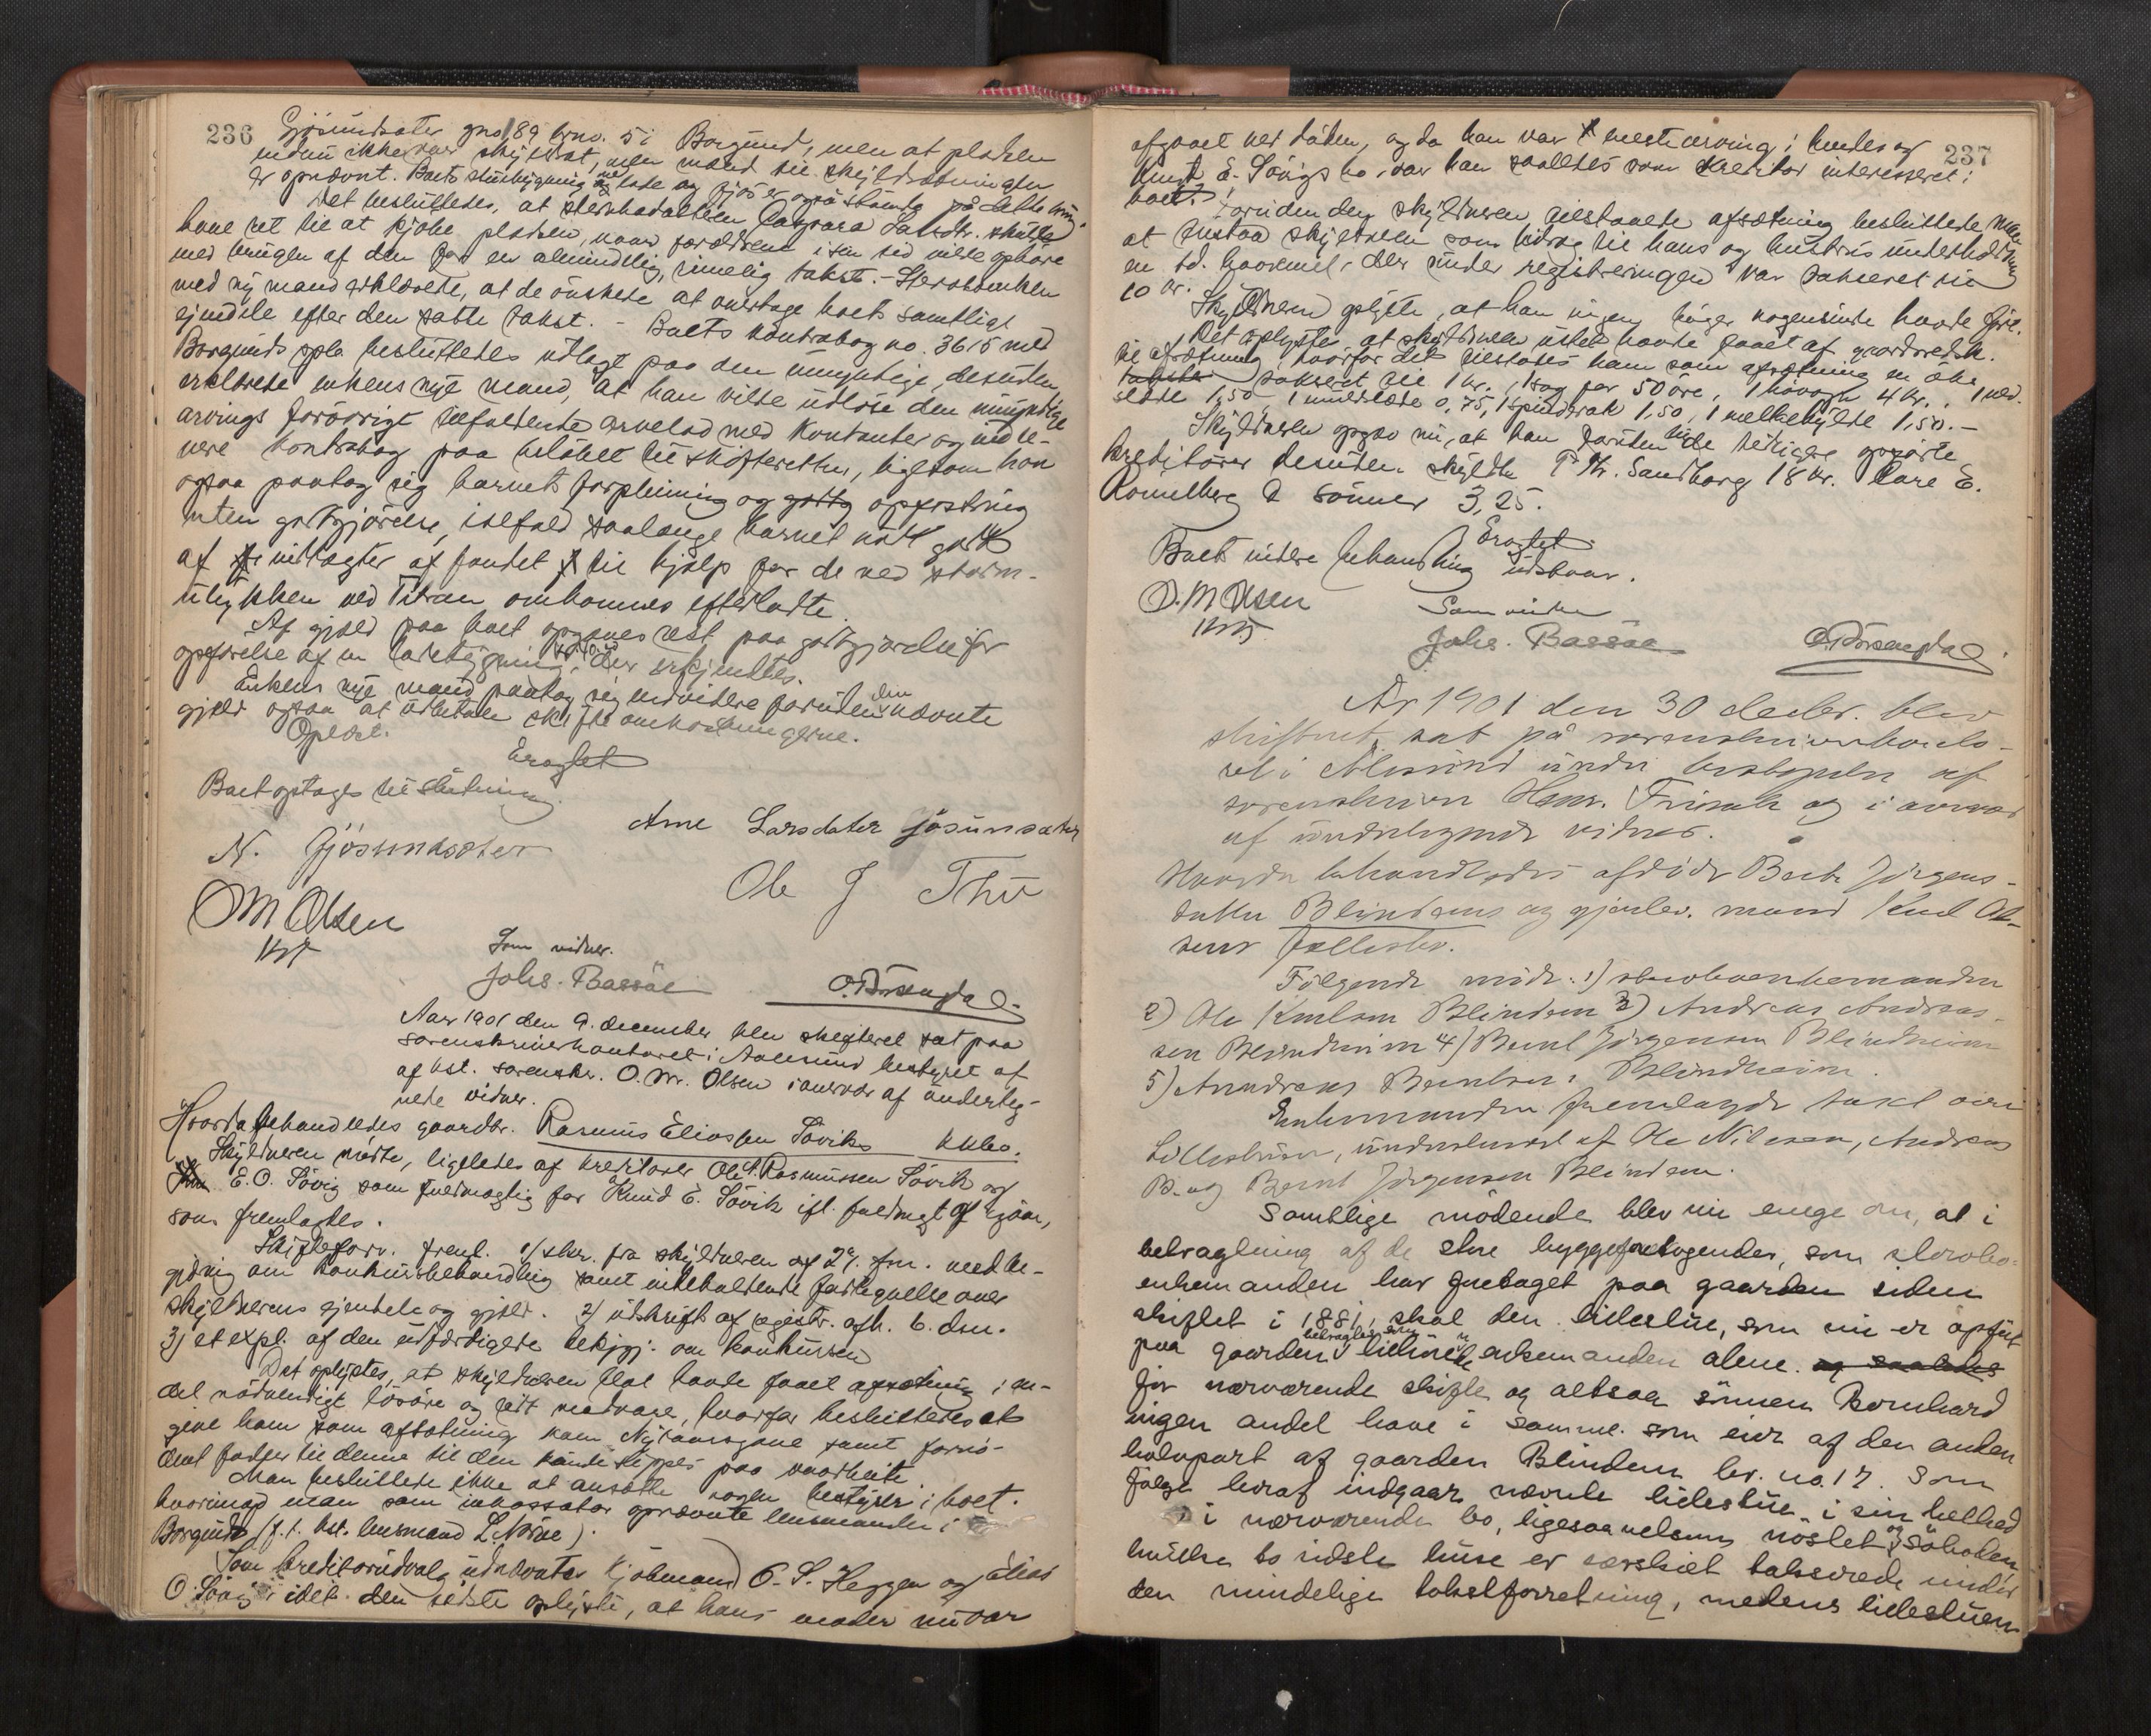 236
Gjösundsæter gno. 89 brno. 5 i Borgund, men at pladsen
endnu ikke var skyldsat, men mænd til skyldsætningen
er opnævnt. Boets stuebygning lade og fjös er også
Det besluttedes, at sterbbodatteren Caspara Larsdtr. skulde
have ret til at kjöbe pladsen, naar forældrene i sin tid vilde ophöre
med brugen af den for en almindelig, rimelig takst. - Sterbboenken
med ny mand erklærede, at de önskede at overtage boets samtlige
eiendele efter den satte takst. - Boets kontrabog no. 3615 med
Borgunds spb. besluttedes udlagt paa den umyndige, desuden
erklærede enkens nye mand, at han vilde udlöse den umyndige
arvings forövrigt tilfaldende arvelod med kontanter og indle-
vere kontrabog paa belöbet til skifteretten, ligesom han
ogsaa paatog sig barnets forpleining og opfostring
uten godtgjörelse, ialfald saalænge barnet nöt godt
af indtægter af fondet til hjælp for de ved storm-
ulykken ved Titran omkomnes efterladte.
Af gjæld paa boet opgaves rest paa godtgjörelse for
opförelse af en ladebygning, der erkjendtes.
Enkens nye mand paatog sig endvidere foruden den nævnte
gjæld ogsaa at udbetale skifteomkostningerne.
Oplæst.
Eragtet
Boet optages til slutning
N. Gjösundsæter
Arne Larsdater Jösunsæter
Ole J Thu
O M Olsen
kst
Som vidner.
Johs. Bassöe
O. Dörsendal
Aar 1901 den 9. december blev skifteret sat paa
sorenskriverkontoret i Aalesund bestyret af
af kst. sorenskr. O. M. Olsen i overvær af underteg-
nede vidner.
Hvorda behandledes gaardbr. Rasmus Eliassen Söviks kkbo.
Skyldneren mödte, ligeledes af kreditorer Ole Rasmussen Sövik og
E. O. Sövig som fuldmægtig for Knud E. Sövik ifl. fuldmagt af igaar,
som fremlagdes.
Skifteforv. freml. 1/ skr. fra skyldneren af 29. f.m. med be-
gjæring om konkursbehandling samt indeholdende fortegnelse over
skyldnerens eiendele og gjæld. 2/ udskrift af registr. afh. 6. dsm.
3/ et expl. af den udfærdigede bekjgj. om konkursen
Det oplystes, at skyldneren blot havde faaet afsætning i en-
del nödvendigt lösöre og lidt madvare, hvorfor besluttedes at
give ham som afsætning koen Nyaarsgave samt fornö-
dent foder til denne til den kunde slippes paa vaarbeite
Man besluttede ikke at ansætte nogen bestyrer i boet.
hvorimod man som inkassator opnævnte lensmanden i
Borgund (f. t. kst. lensmand L. Nörve).
Som kreditorudvalg udnævntes kjöbmand O. S. Heggen og Elias
O. Sövig idet den sidste oplyste, at hans moder nu var
237
afgaaet ved döden, og da han var medarving i hendes og
Knud E. Sövigs bo, var han saaledes som kreditor interesseret i
boet.
Foruden den skyldneren tilstaaede afsætning besluttede man
at tilstaa skyldneren som bidrag til hans og hustrus underholdning
en td. havremel, der under registreringen var takseret til
10 kr.
Skyldneren oplyste, at han ingen böger nogensinde havde fört.
Det oplystes, at skyldneren intet havde faaet af gaardsredsk.
til afsætning, hvorfor det tilstodes ham som afsætning en öks
takseret til 1 kr., 1 sag for 50 öre, 1 hövogn 4 kr., 1 ved-
slæde 1,50 1 0,75, 1 spinderok 1,50, 1 melkebytte 1,50. -
Skyldneren opgav nu, at han foruden de tidligere opgivne
kreditorer desuden skyldte P. Kr. Sandborg 18 kr. Care E.
Ronneberg & sönner 3,25.
Eragtet
Boets videre behandling udstaar.
O. M Olsen
kst.
Som vidner
Johs. Bassöe
O. Dörsendal
År 1901 den 30 decbr. blev
skifteret sat på sorenskriverkonto-
ret i Ålesund under bestyrelse af
sorenskriver Hans. Frisak og i overvær
af undertegnede vidner.
Hvorda behandledes afdöde Berte Jörgens-
datter Blindems og gjenlev. mand Knud Ol-
sens fællesbo.
Følgende mödte: 1) sterboenkemanden
2) Ole Knudsen Blindem 3) Andreas Andreas-
sen Blindheim 4) Bernt Jörgensen Blindheim
5) Anndreas Berntsen Blindheim.
Enkemanden fremlagde takst over
lillestuen, underskrevet af Ole Nilssen, Andreas
B. og Bernt Jörgensen Blindem.
Samtlige mödende blev nu enige om, at i
betragtning af de store byggeforetagender, som sterbo-
enkemanden har foretaget paa gaarden siden
skiftet i 1881, skal den lillestue, som nu er opfört
paa gaarden betragtes som tilhörende enkemanden alene. og saaledes
for nærværende skifte og altsaa sönnen Bernhard
ingen andel have i samme som eier af den anden
halvpart af gaarden Blindem br. no. 17. Som
fölge heraf indgaar nævnte lillestue i sin helhed
i nærværende bo, ligesaavelsom nöstet og söboden
hvilke to sidste huse er særskilt takserede under
den mindelige takstforretning, medens lillestuen